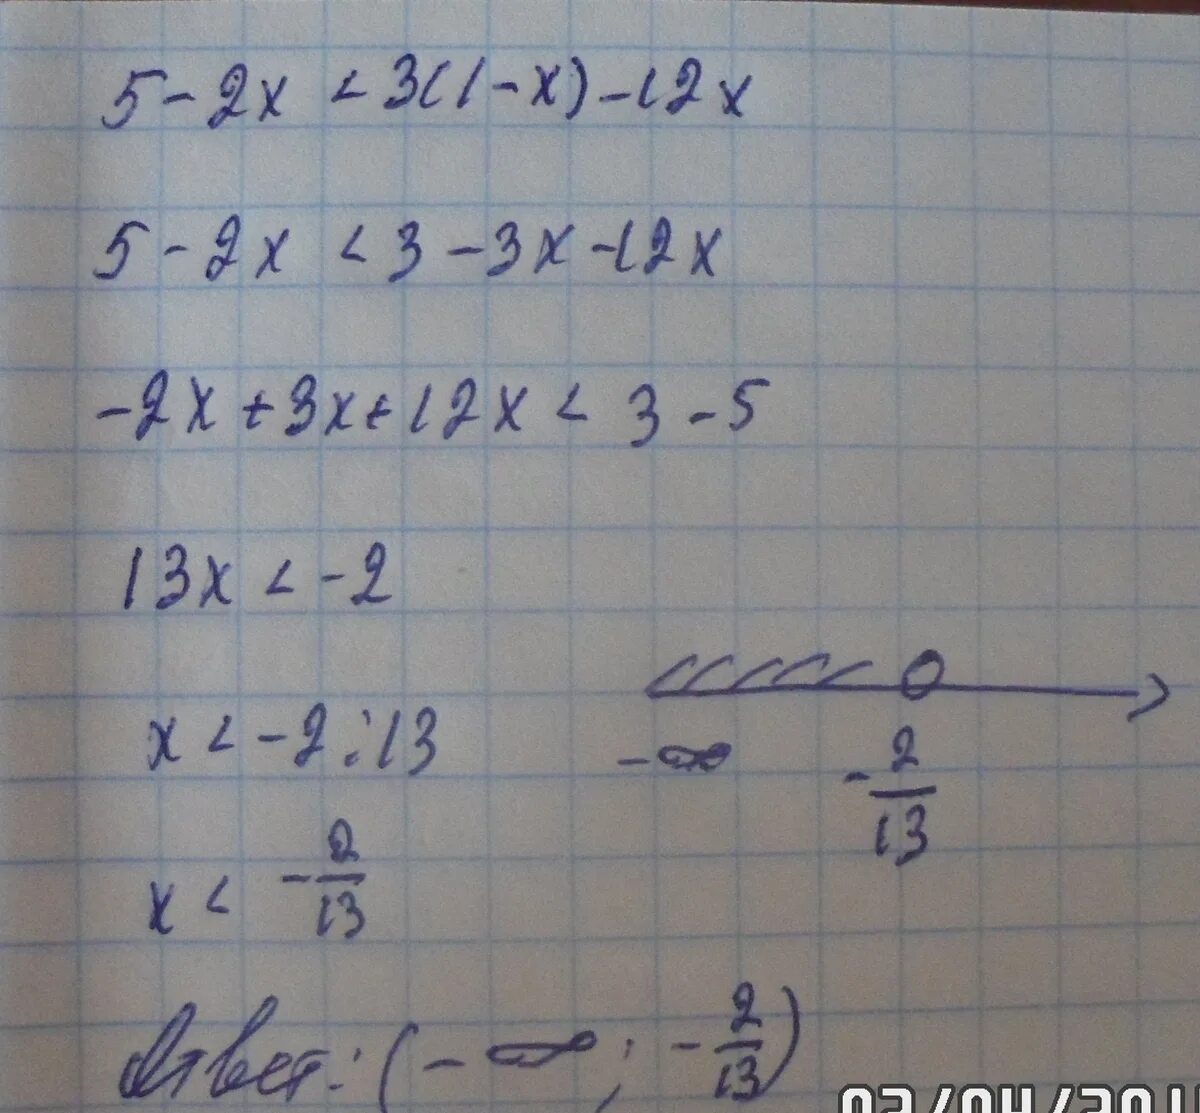 5 - 2x < 3(1 - x) - 12x
5 - 2x < 3 - 3x - 12x
-2x + 3x + 12x < 3 - 5
13x < -2
x < -2 : 13
-∞ -2/13
x < -2/13
Ответ: (-∞ ; -2/13)